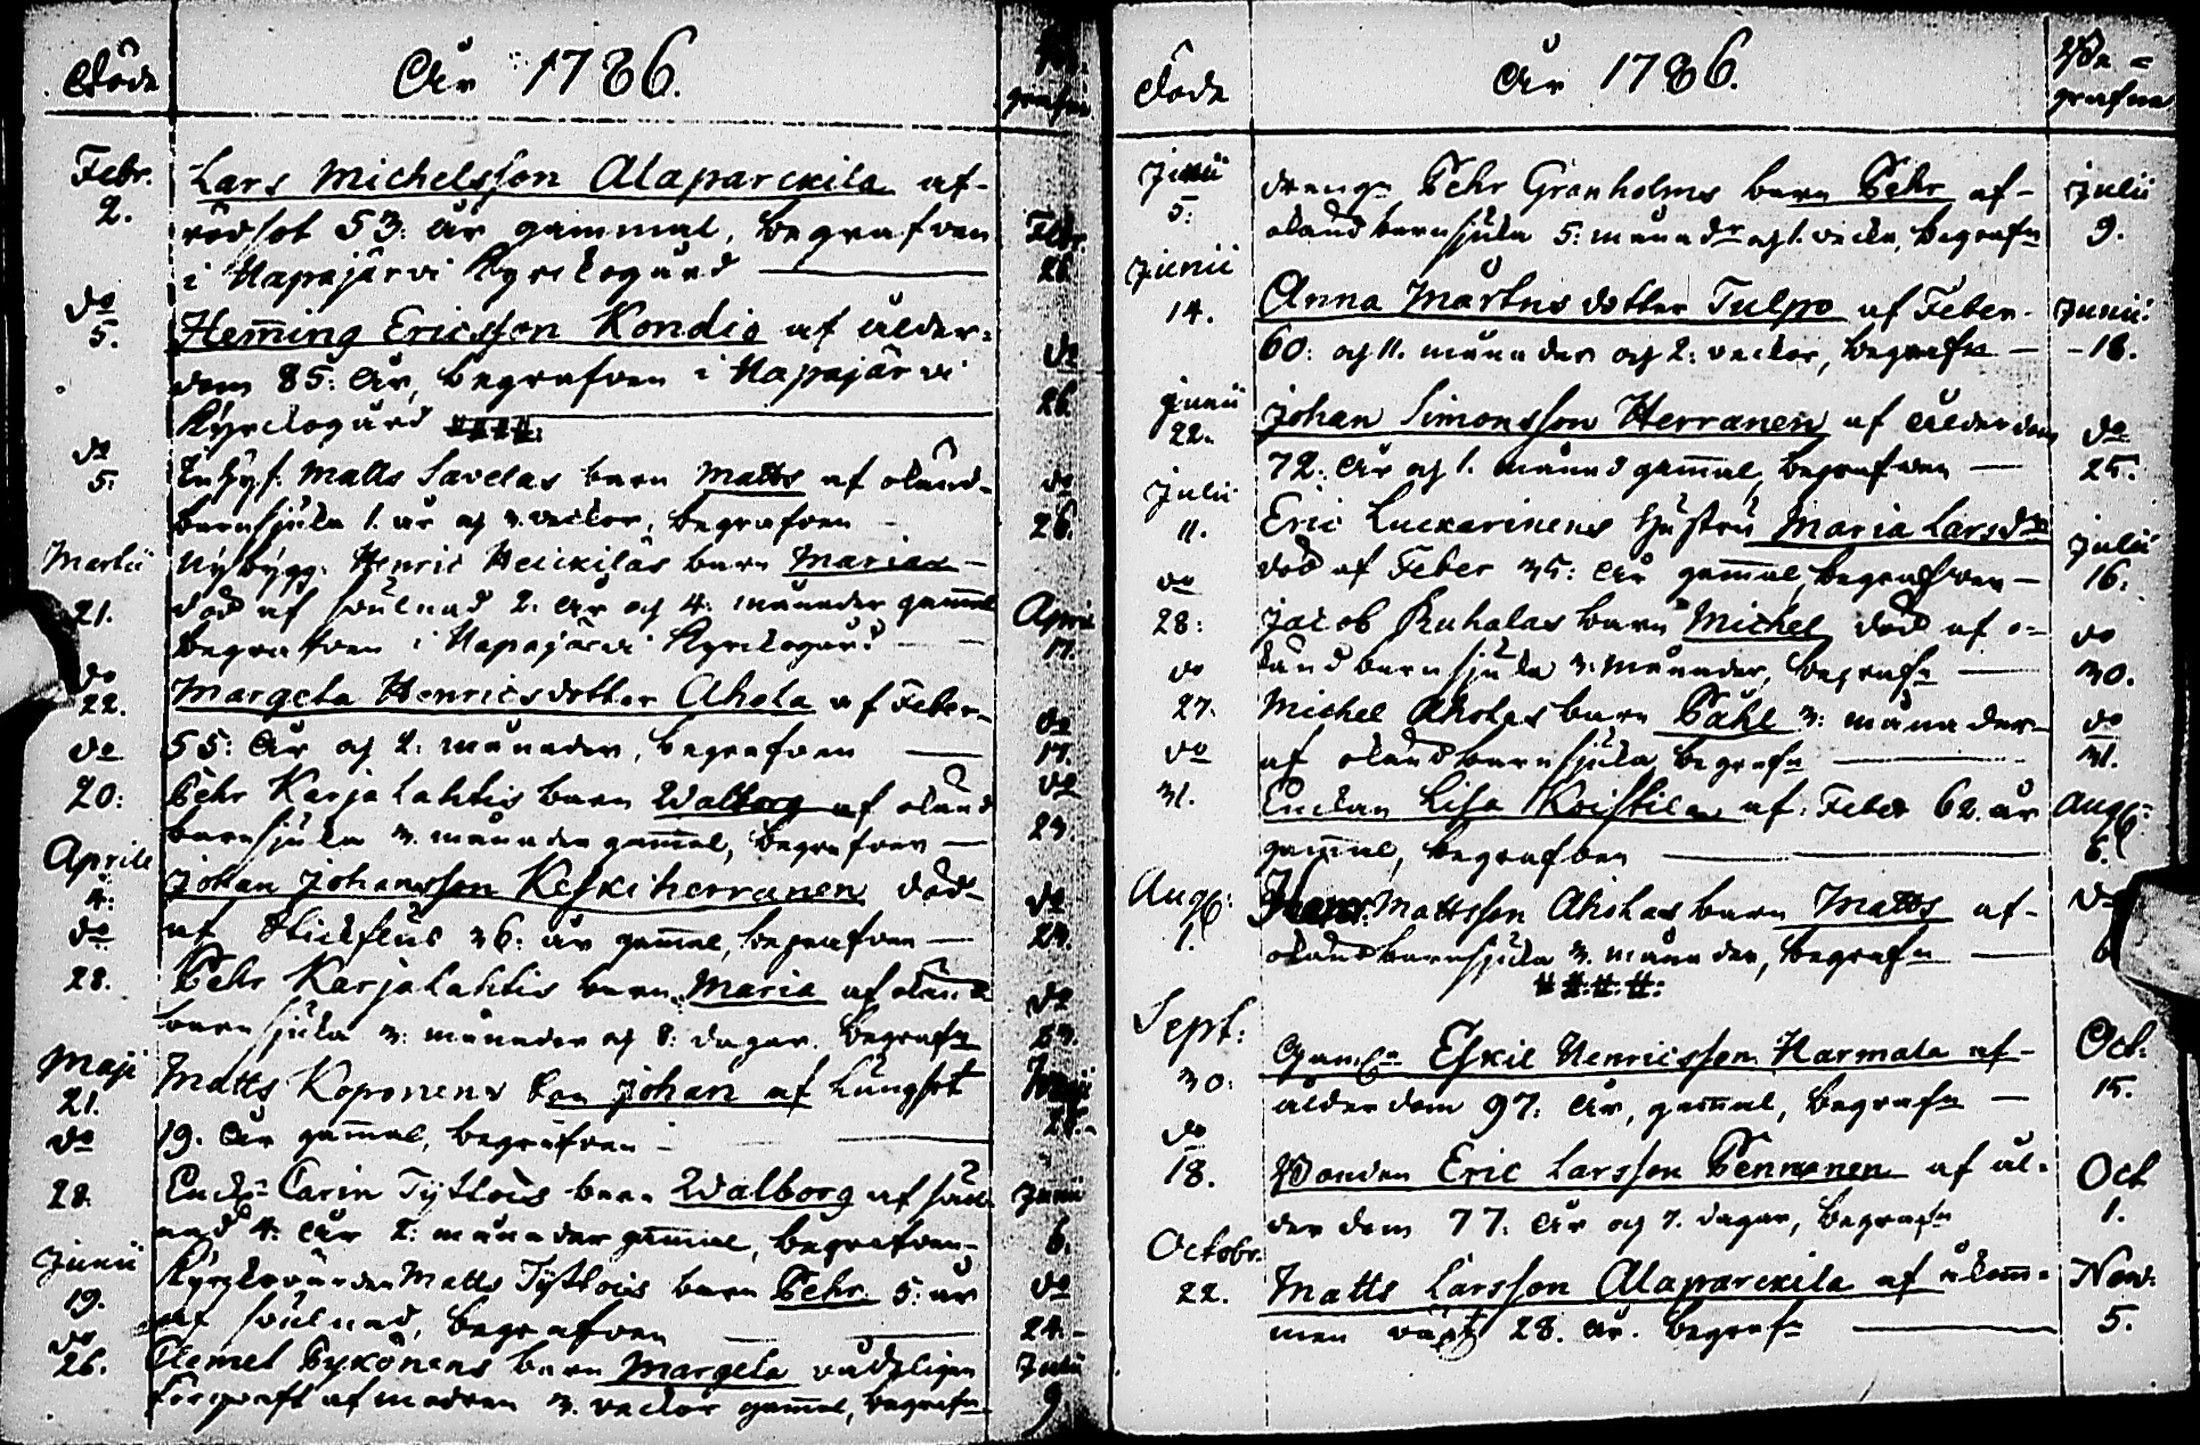 Döde
År 1786.
Be-
grafne
Febr.
2.
Lars Michelsson Alaparckila af
rödsot 53: år gammal, begrafven
i Napajärvi Kyrckogård
Febr.
26.
do
5.
Hem̅ing Ericsson Kondio af ålder-
dom 85: År, begrafven i Napajärvi
Kyrckogård ####:
do
26.
do
5.
Matts Savelas barn Matts af okänd
barnsjuka 1. år och 3. veckor, begrafven
do
26.
Martii
21.
Nybygg. Henric Heickiläs barn Maria
död af svulnad 2. År och 4. månader gam̅al
begrafven i Napajärvi Kyrckogård
April
17.
do
22.
Margeta Henricsdotter Ahola af Feber
55: År och 2. månader, begrafven
do
17.
do
20:
Pehr Karjalahtis barn Walborg af okänd
barnsjuka 3. månader gam̅al, begrafven
do
23.
Aprile
4:
Johan Johansson Keskiherranen död
af Stickfluss 36: år gam̅al, begrafven
do
23.
do
28.
Pehr Karjalahtis barn Maria af okänd
barnsjuka 3: månader och 8: dagar. begrafn
do
23.
Maji
21.
Matts Koponens son Johan af Lungsot
19. År gam̅al, begrafven
Maji
28.
do
28.
Enck. Carin Tyttöis barn Walborg af svul-
nad 4. År 2: månader gam̅al, begrafven
Junii
6.
Junii
19.
Kyrckovärden Matts Tyttöis barn Pehr 5: år
af svulnad, begrafven
do
24.
do
26.
Clemet Pykönens barn Margeta vådeligen
förqvaft af modren 3. veckor gam̅al, begrafn
Julii
9
Döde
År 1786.
Be-
grafne
Junii
5:
drengn Pehr Granholms barn Pehr af
okänd barnsjuka 5: månadr och 1. vecka, begrafn
Julii
9.
Junii
14.
Anna Mårtensdotter Tulpo af Feber
60: och 11. månader och 2: veckor, begrafn
Junii
18.
Junii
22.
Johan Simonsson Herranen af ålderdom
72: År och 1. månad gam̅al, begrafven
do
25.
Julii
11.
Eric Luckarinens hustru Maria Larsdr
död af Feber 35: År gam̅al, begrafven
Julii
16.
do
28:
Jacob Ruhalas barn Michel död af o-
känd barnsjuka 3. månader, begrafn
do
30.
do
27.
Michel Aholas barn Påhl 3: månader
af okänd barnsjuka begrafn
do
31.
do
31.
Enckan Lisa Kristilä af Feber 62. år
gam̅al, begrafven
Aug:
6.
Aug:
1.
Henr. Mattsson Aholas barn Matts af
okänd barnsjuka 3. månader, begrafn
####:
do
6
Sept:
30:
Gamle Eskil Henricsson Harmala af
ålderdom 97. År, gam̅al, begrafn
Oct:
15.
do
18.
Bonden Eric Larsson Pennanen af ål-
derdom 77. År och 7. dagar, begrafn
Oct
1.
Octobr.
22.
Matts Larsson Alaparckila af åkom̅-
men växt 28. År. begrafn
Nov:
5.